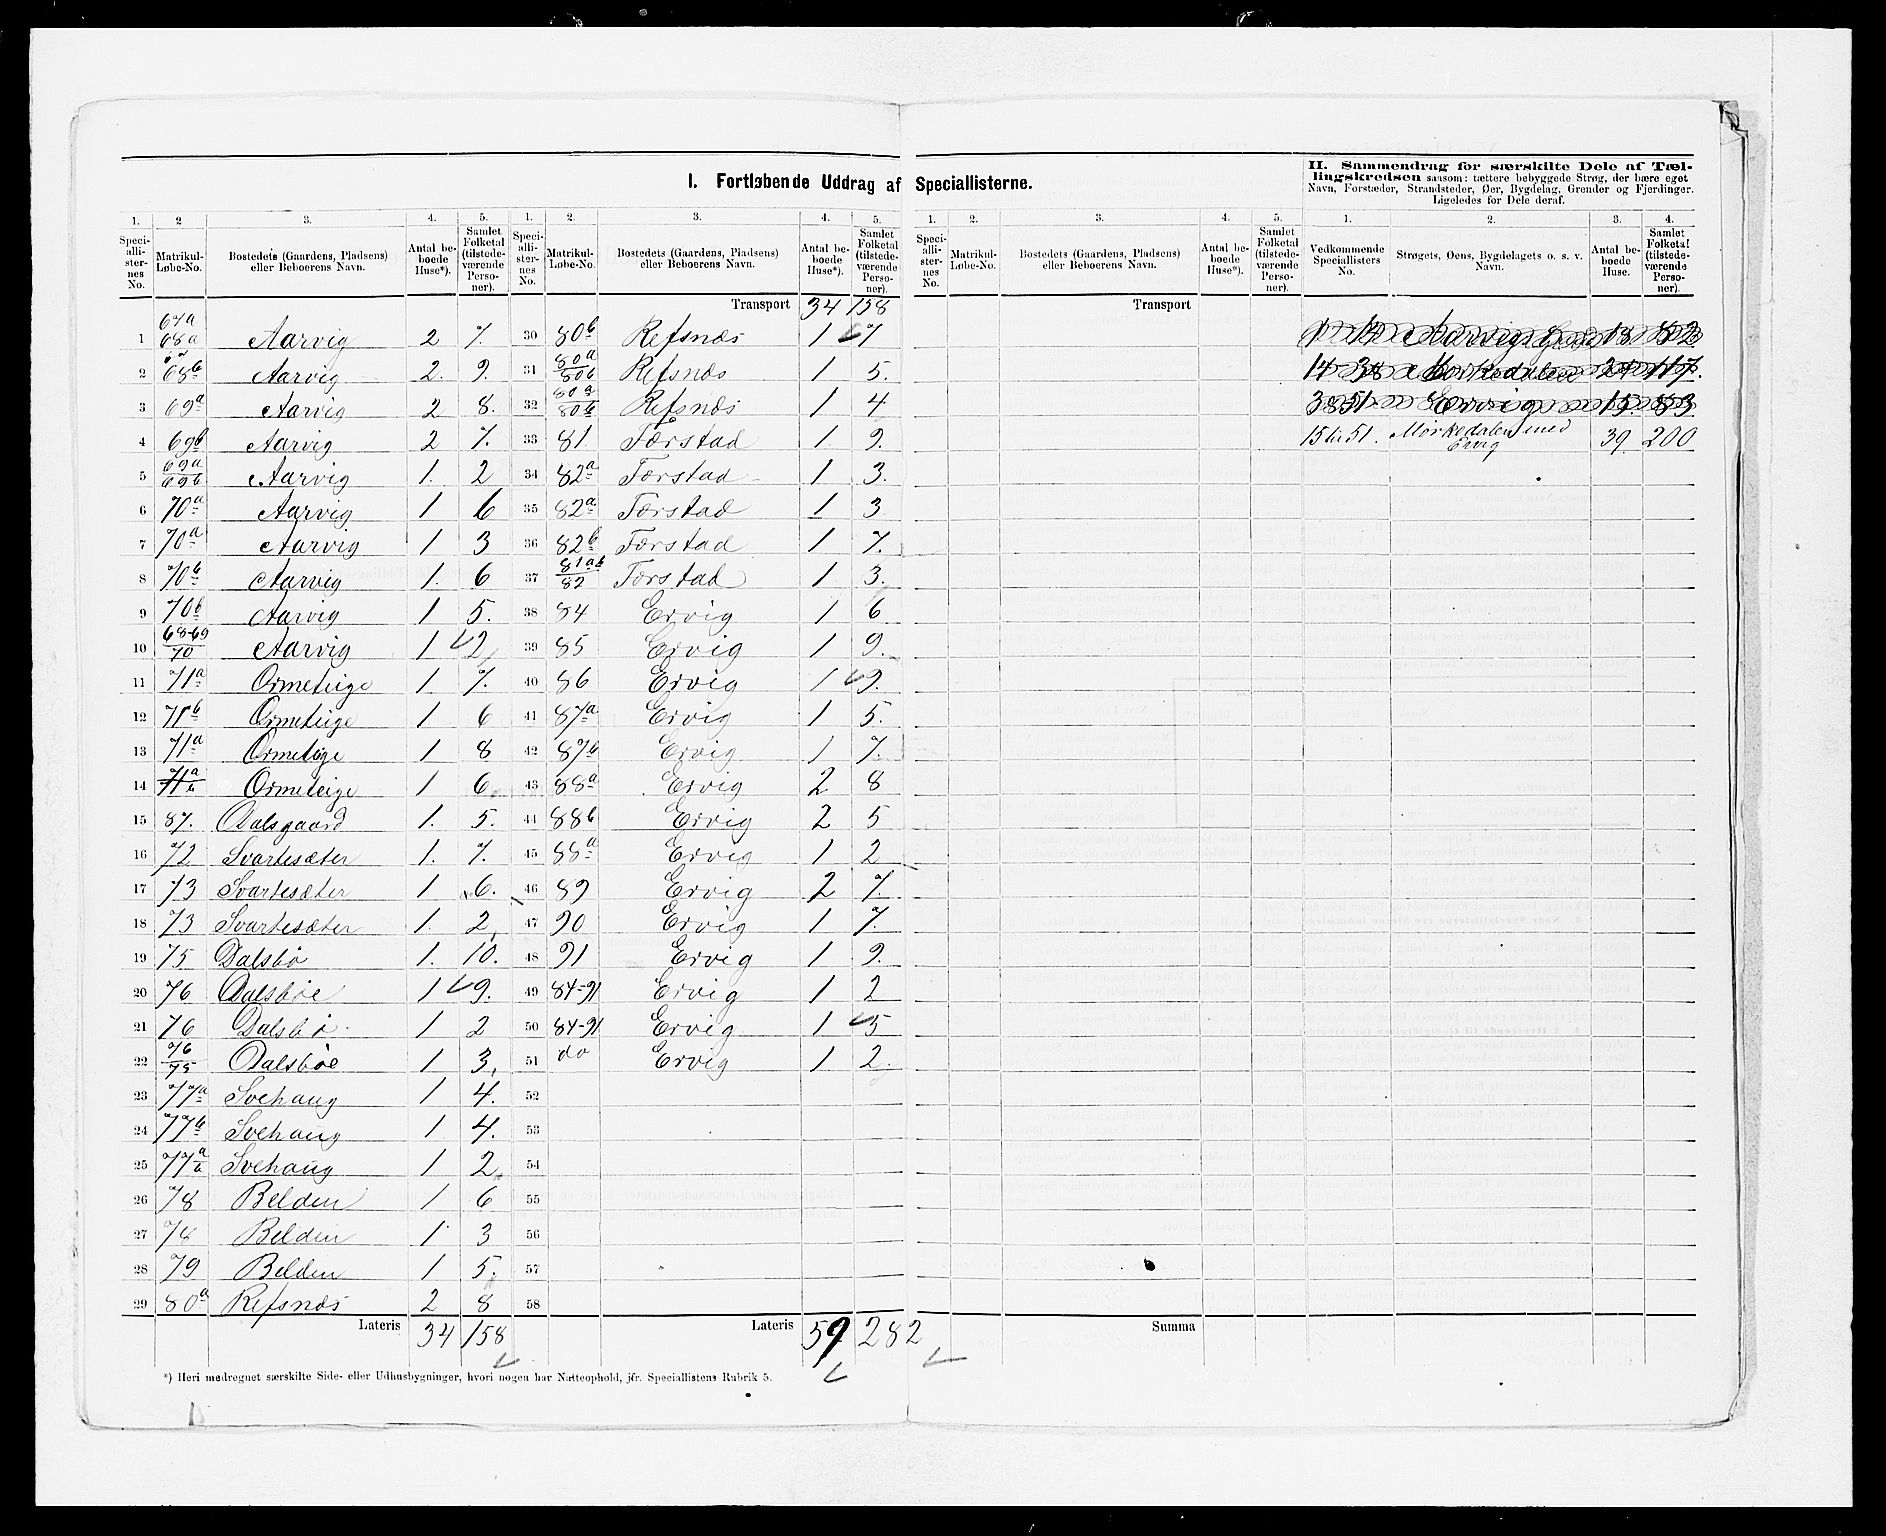 I. Fortløbende Uddrag af Speciallisterne.
II. Sammendrag for særskilte Dele af Tæl-
lingskredsen saasom: tættere bebyggede Strøg, der bære eget
Navn, Forstæder, Strandsteder, Øer, Bygdelag, Grender og Fjerdinger.
Ligeledes for Dele deraf.
1. 2 3. 4. 5. 1. 2. 3. 4. 5. 1. 2. 3. 4. 5. 1. 2. 3. 4.
Speciallisternes No. Matrikul-Løbe-No. Bostedets (Gaardens, Pladsens) eller Beboerens Navn. Antal beboede Huse*). Samlet Folketal (tilstedeværende Personer).
Speciallisternes No. Matrikul-Løbe-No. Bostedets (Gaardens, Pladsens) eller Beboerens Navn. Antal beboede Huse*). Samlet Folketal (tilstedeværende Personer).
Speciallisternes No. Matrikul-Løbe-No. Bostedets (Gaardens, Pladsens) eller Beboerens Navn. Antal beboede Huse*). Samlet Folketal (tilstedeværende Personer).
Vedkommende Speciallisters No. Strøgets, Øens, Bygdelagets o. s. v. Navn. Antal beboede Huse. Samlet Folketal (tilstedeværende Personer).
1 67a 68a Aarvig 2 7.
2 68b Aarvig 2. 9.
3 69a Aarvig 2 8.
4 69b Aarvig 2 7.
5 69a 69b Aarvig 1. 2
6 70a Aarvig 1 6
7 70a Aarvig 1 3
8 70b Aarvig 1. 6
9 70b Aarvig 1 5.
10 68-69 70 Aarvig 1 2
11 71a Ormeteige 1. 7.
12 71b Ormeteige 1 6
13 71a Ormeteige 1 8
14 71a b Ormeteige 1 6
15 87. Dalsgaard 1. 5.
16 72 Svartesæter 1. 7.
17 73 Svartesæter 1 6.
18 73 Svartesæter 1. 2
19 75 Dalsbö 1. 10.
20 76 Dalsböe 1 9.
21 76 Dalsbö 1 2
22 76 75 Dalsböe 1 3
23 77a Svehaug 1 4.
24 77b Svehaug 1 4.
25 77a b Svehaug 1 2
26 78 Belden 1 6
27 78 Belden 1 3
28 79 Belden 1 5.
29 80a Refsnæs 2 8
Lateris 34 158
Transport 34 158
30 80b Refsnæs 1 7
31 80a 80b Refsnæs 1 5.
32 80a 80b Refsnæs 1 4
33 81 Færstad 1. 9.
34 82a Færstad 1 3.
35 82a Færstad 1 3
36 82b Færstad 1 7.
37 81ab 82 Færstad 1 3.
38 84 Ervig 1 6
39 85 Ervig 1 9.
40 86 Ervig 1 9.
41 87a Ervig 1 5.
42 87b Ervig 1 7.
43 88a Ervig 2 8
44 88b Ervig 2 5
45 88a Ervig 1 2
46 89 Ervig 2 7.
47 90 Ervig 1 7.
48 91 Ervig 1 9.
49 84-91 Ervig 1 2
50 84-91 Ervig 1 5
51 do Ervig 1 2.
52
53
54
55
56
57
58
Lateris 59 282
Transport
Summa
Aarvig 18 82
14 38 Mørkedalen 24 117.
38 51. Ervig 15. 83
15 til 51. Mörkedalen med Ervig 39 200
*) Heri medregnet særskilte Side- eller Udhusbygninger, hvori nogen har Natteophold, jfr. Speciallistens Rubrik 5.